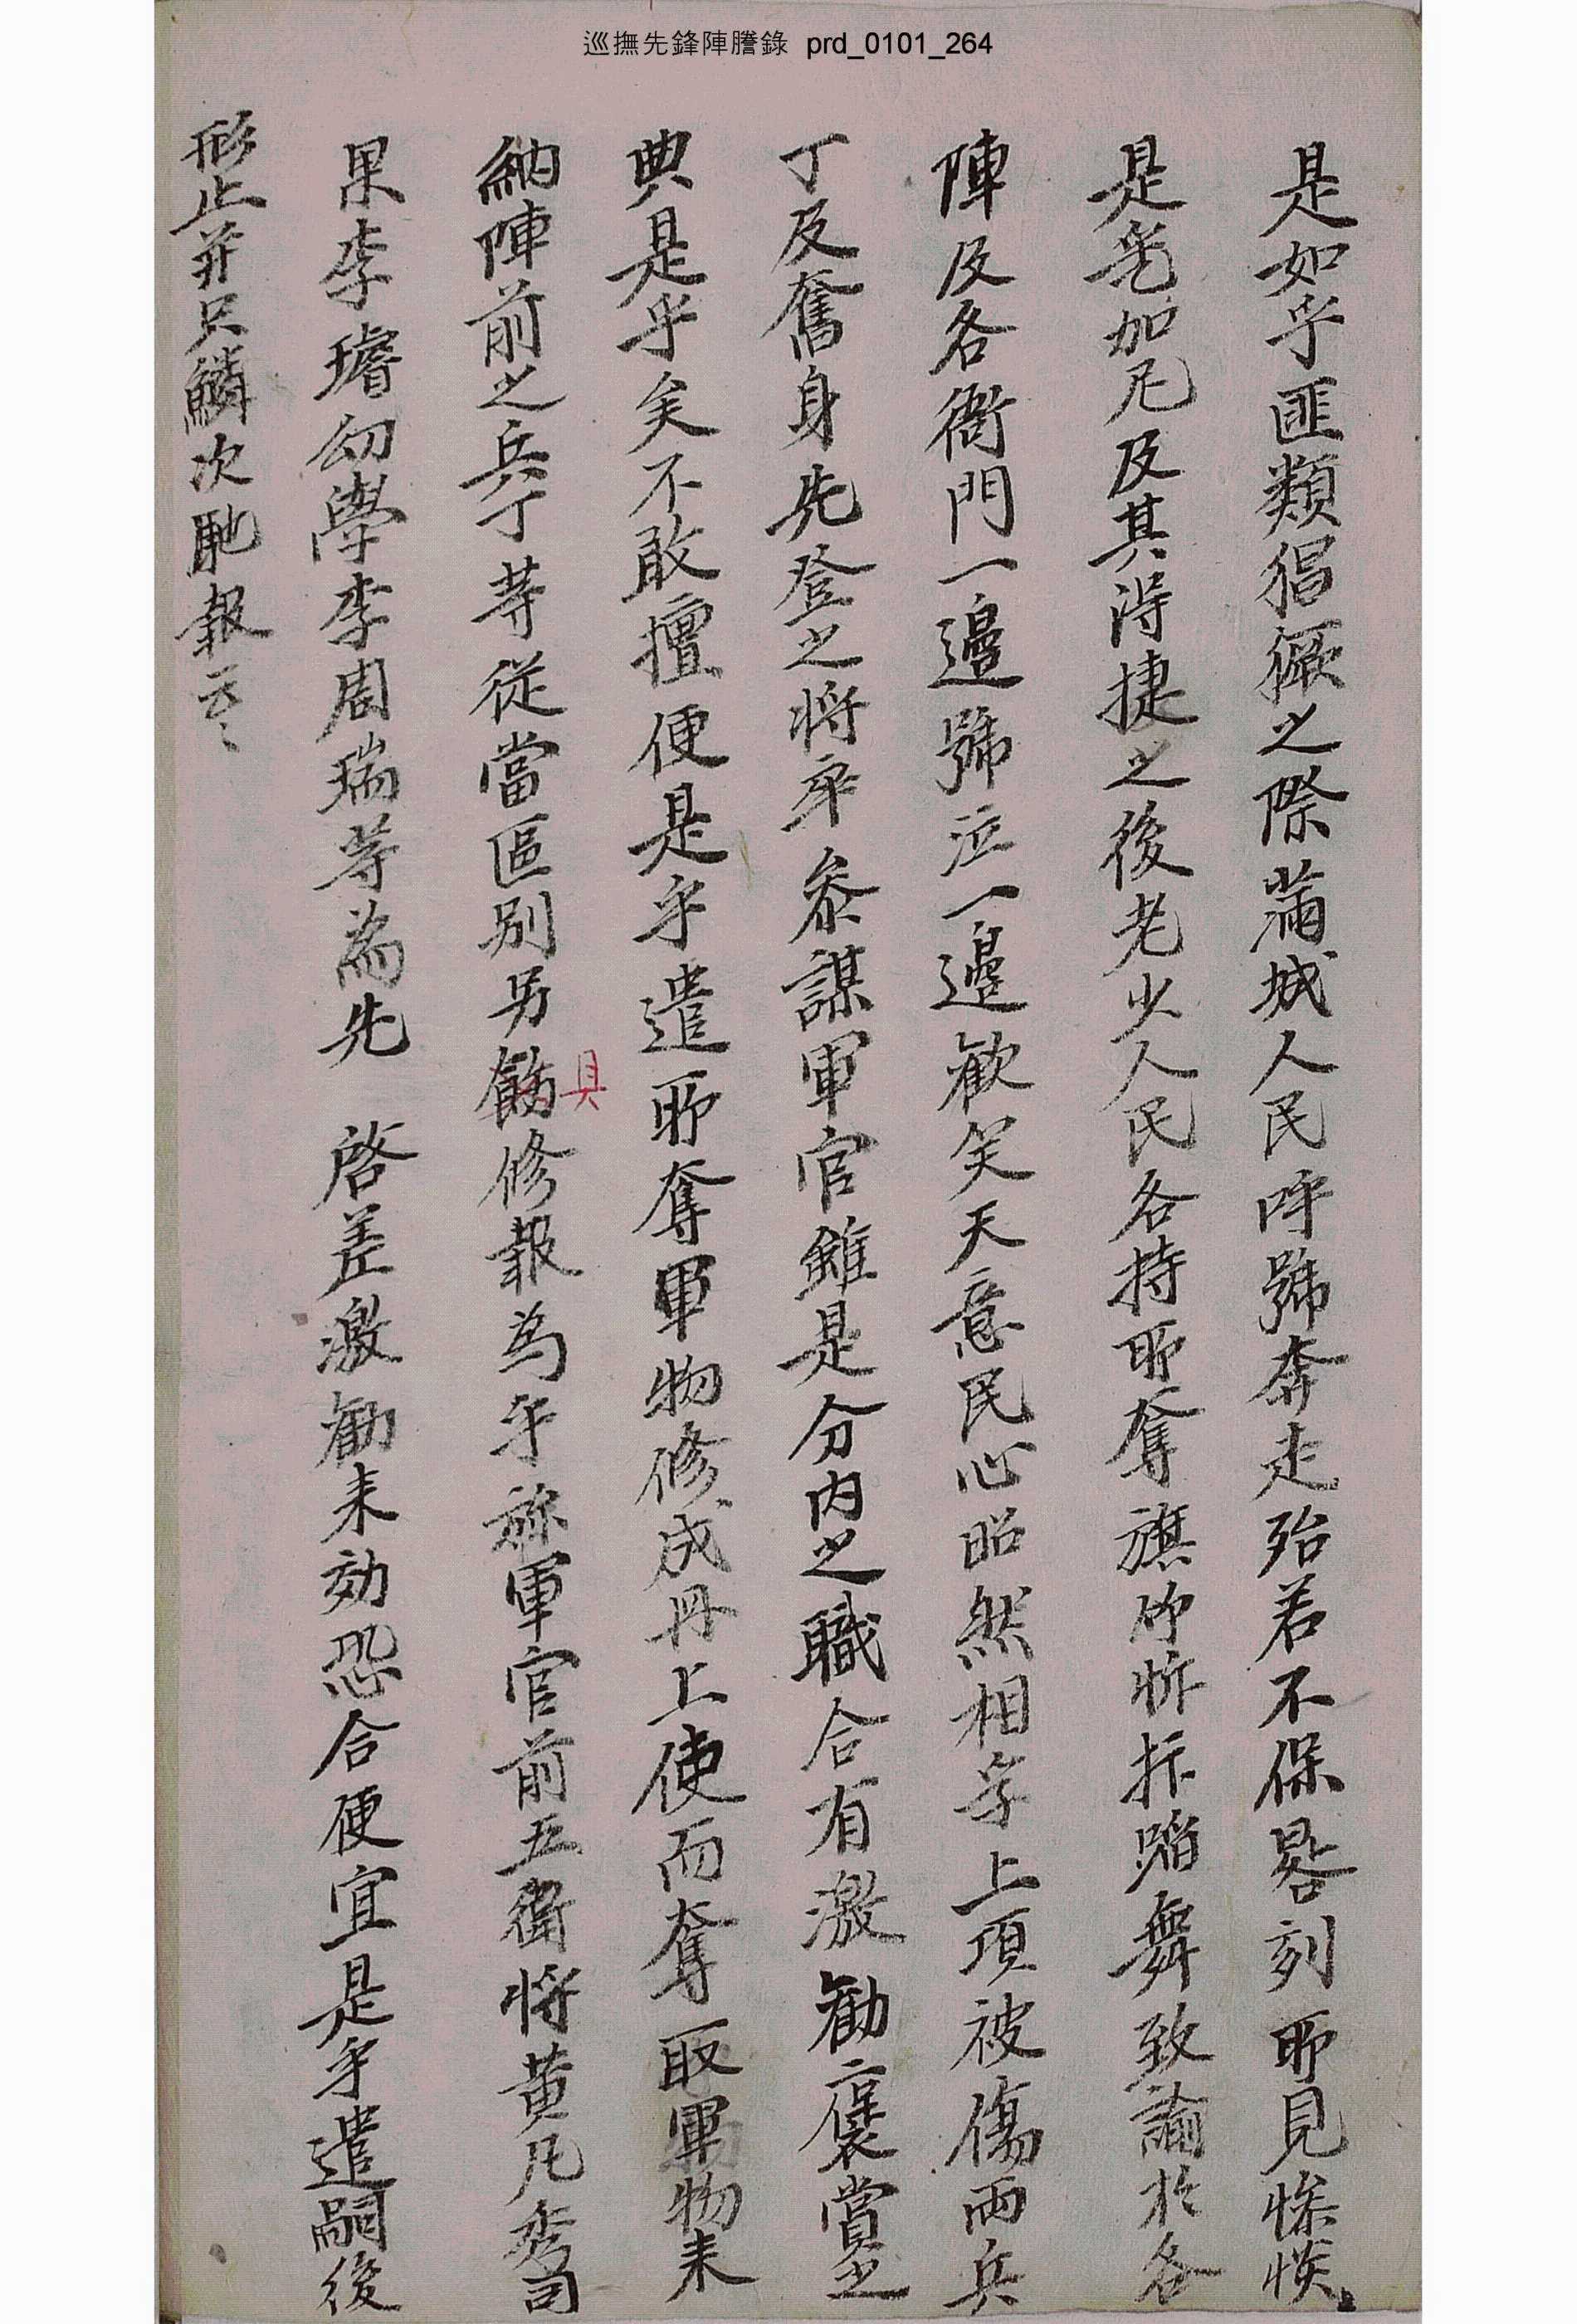 巡撫先鋒陣謄錄 prd_0101_264
是如乎匪類猖獗之際滿城人民呼號奔走殆若不保晷刻所見慘惔
是乎加尼及其淂捷之後老少人民各持所奪旗帜忻抃蹈舞致論於各
陣及各衙門一邊號泣一邊歡笑天意民心昭然相孚上項被傷両兵
丁及奮身先登之將卒叅謀軍官雖是分內之職合有激勸褒賞之
典是乎矣不敢擅便是乎遣所奪軍物修成冊上使而奪取軍物来
納陣前之兵丁等從當區別另飭修報爲乎旀軍官前五衛將黃凡秀司
具
果李璿幼學李周瑞等爲先 啓差激勸来効恐合便宜是乎遣嗣後
形止并只鱗次馳報云云